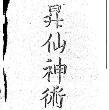 昇仙神術